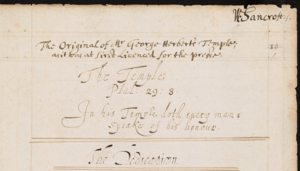 W. Sancroft.
The Original of Mr George Herbert's Temple;
as it was at first Licenced for the presse.
The Temple
Psal. 29. 8.
In his Temple doth every man
speake of his honour.
The Dedication